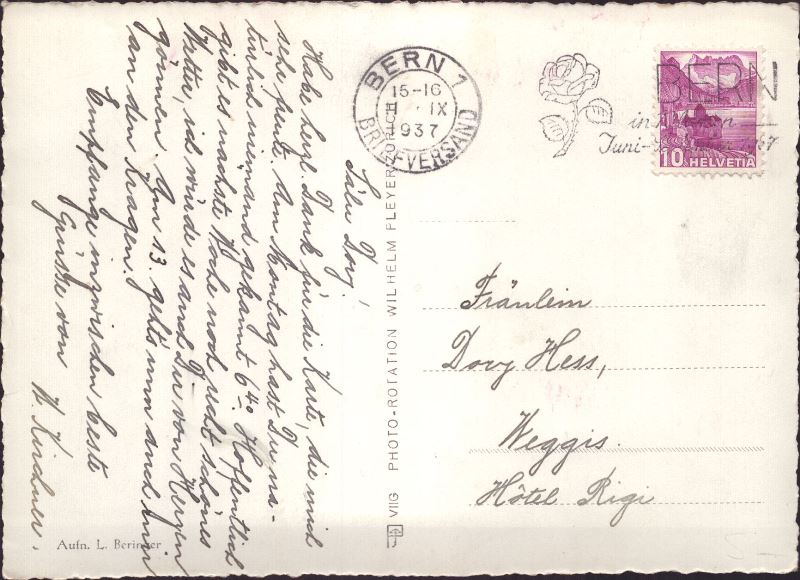 Säli Dory!
Habe herzl. Dank für die Karte, die mich
sehr freute. Am Montag hast Du na-
türlich niemand gekannt 6⁴⁰. Hoffentlich
gibt es nächste Woche noch recht schönes
Wetter, ich würde es auch Dir von Herzen
gönnen. Am 13. geht's nun auch mir
an den Kragen!
Empfange inzwischen beste
Grüsse von
W. Kirchner.
Aufn. L. Beringer
VIIG PHOTO-ROTATION WILHELM PLEYER ZÜRICH
BERN 1
15-16
IX
1937
BRIEFVERSAND
BERN
in
Juni-
10 HELVETIA
Fräulein
Dory Hess,
Weggis.
Hôtel Rigi